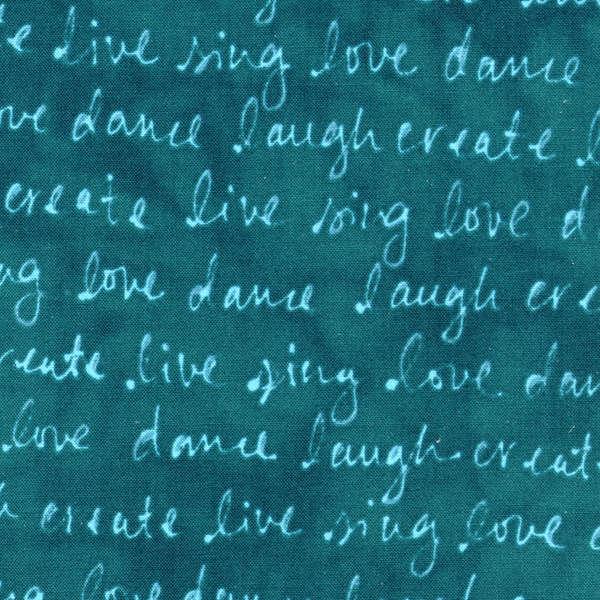 live sing love dance
dance laugh create
create live sing love
love dance laugh
create live sing love
love dance laugh create
create live sing love
love